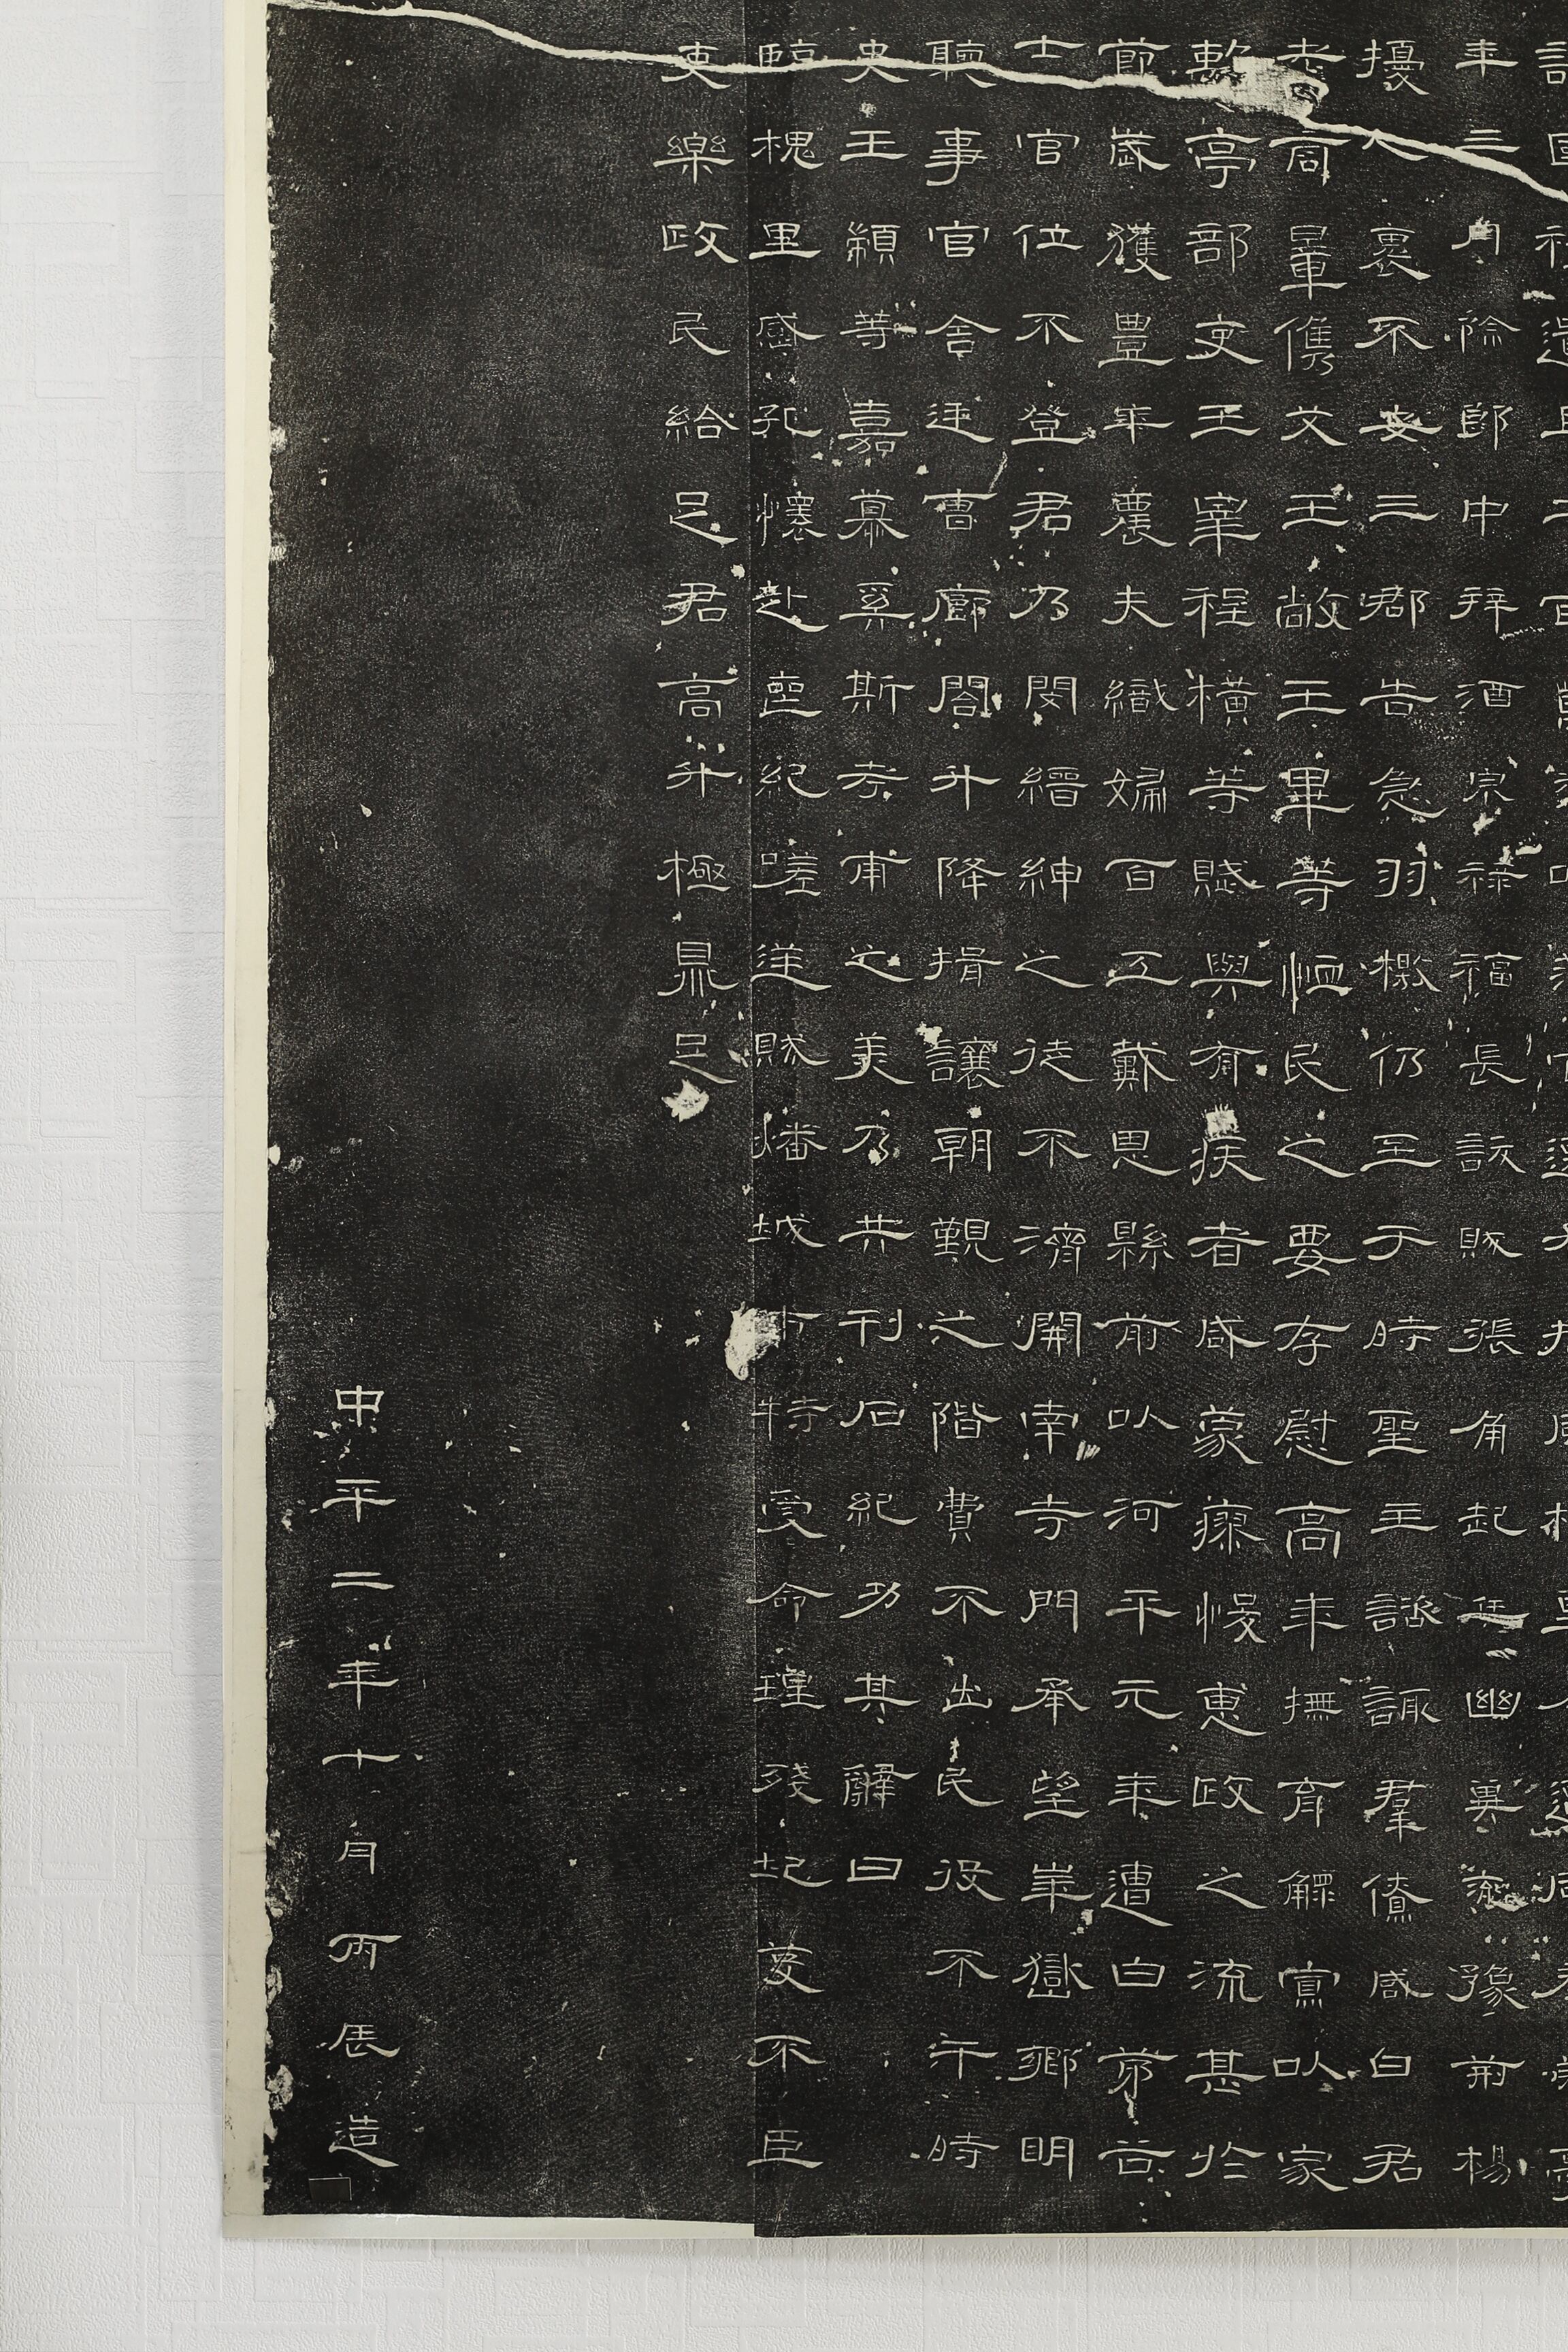 年三月除郎中拜酒泉祿福長訞賊張角起兵幽冀兗豫荊楊
擾人裹不安三郡告急羽檄仍至于時聖主諮諏羣僚咸曰君
老商量儁艾王敞王畢等恤民之要存慰高年撫育鰥寡以家
離亭部吏王宰程橫等賦與有疾者咸蒙瘳悛惠政之流甚於
節歲獲豐年農夫織婦百工戴恩縣前以河平元年遭白茅谷
士官位不登君乃閔縉紳之徒不濟開南寺門承望華嶽鄉明
聽事官舍廷曹廊閤升降揖讓朝覲之階費不出民役不干時
史王顓等嘉慕奚斯考甫之美乃共刊石紀功其辭曰
臨槐里感孔懷赴喪紀嗟逆賊燔城市特受命理殘圮芟不臣
吏樂政民給足君高升極鼎足
中平二年十月丙辰造